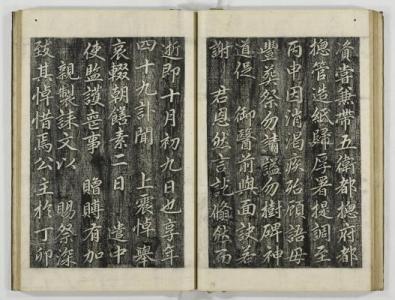 資嘗兼帶五衛都摠府都
摠管造紙歸厚署提調至
丙申因消渴疾死顧語毋
豊葬祭勿請謚勿樹碑神
道促 御醫前與面訣若
謝 君恩然言訖翛然而
逝即十月初九日也享年
四十九訃聞 上震悼舉
哀輟朝饍素二日 遣中
使監護喪事 賵賻有加
親製誄文以 賜祭深
致其悼惜焉公主於丁卯